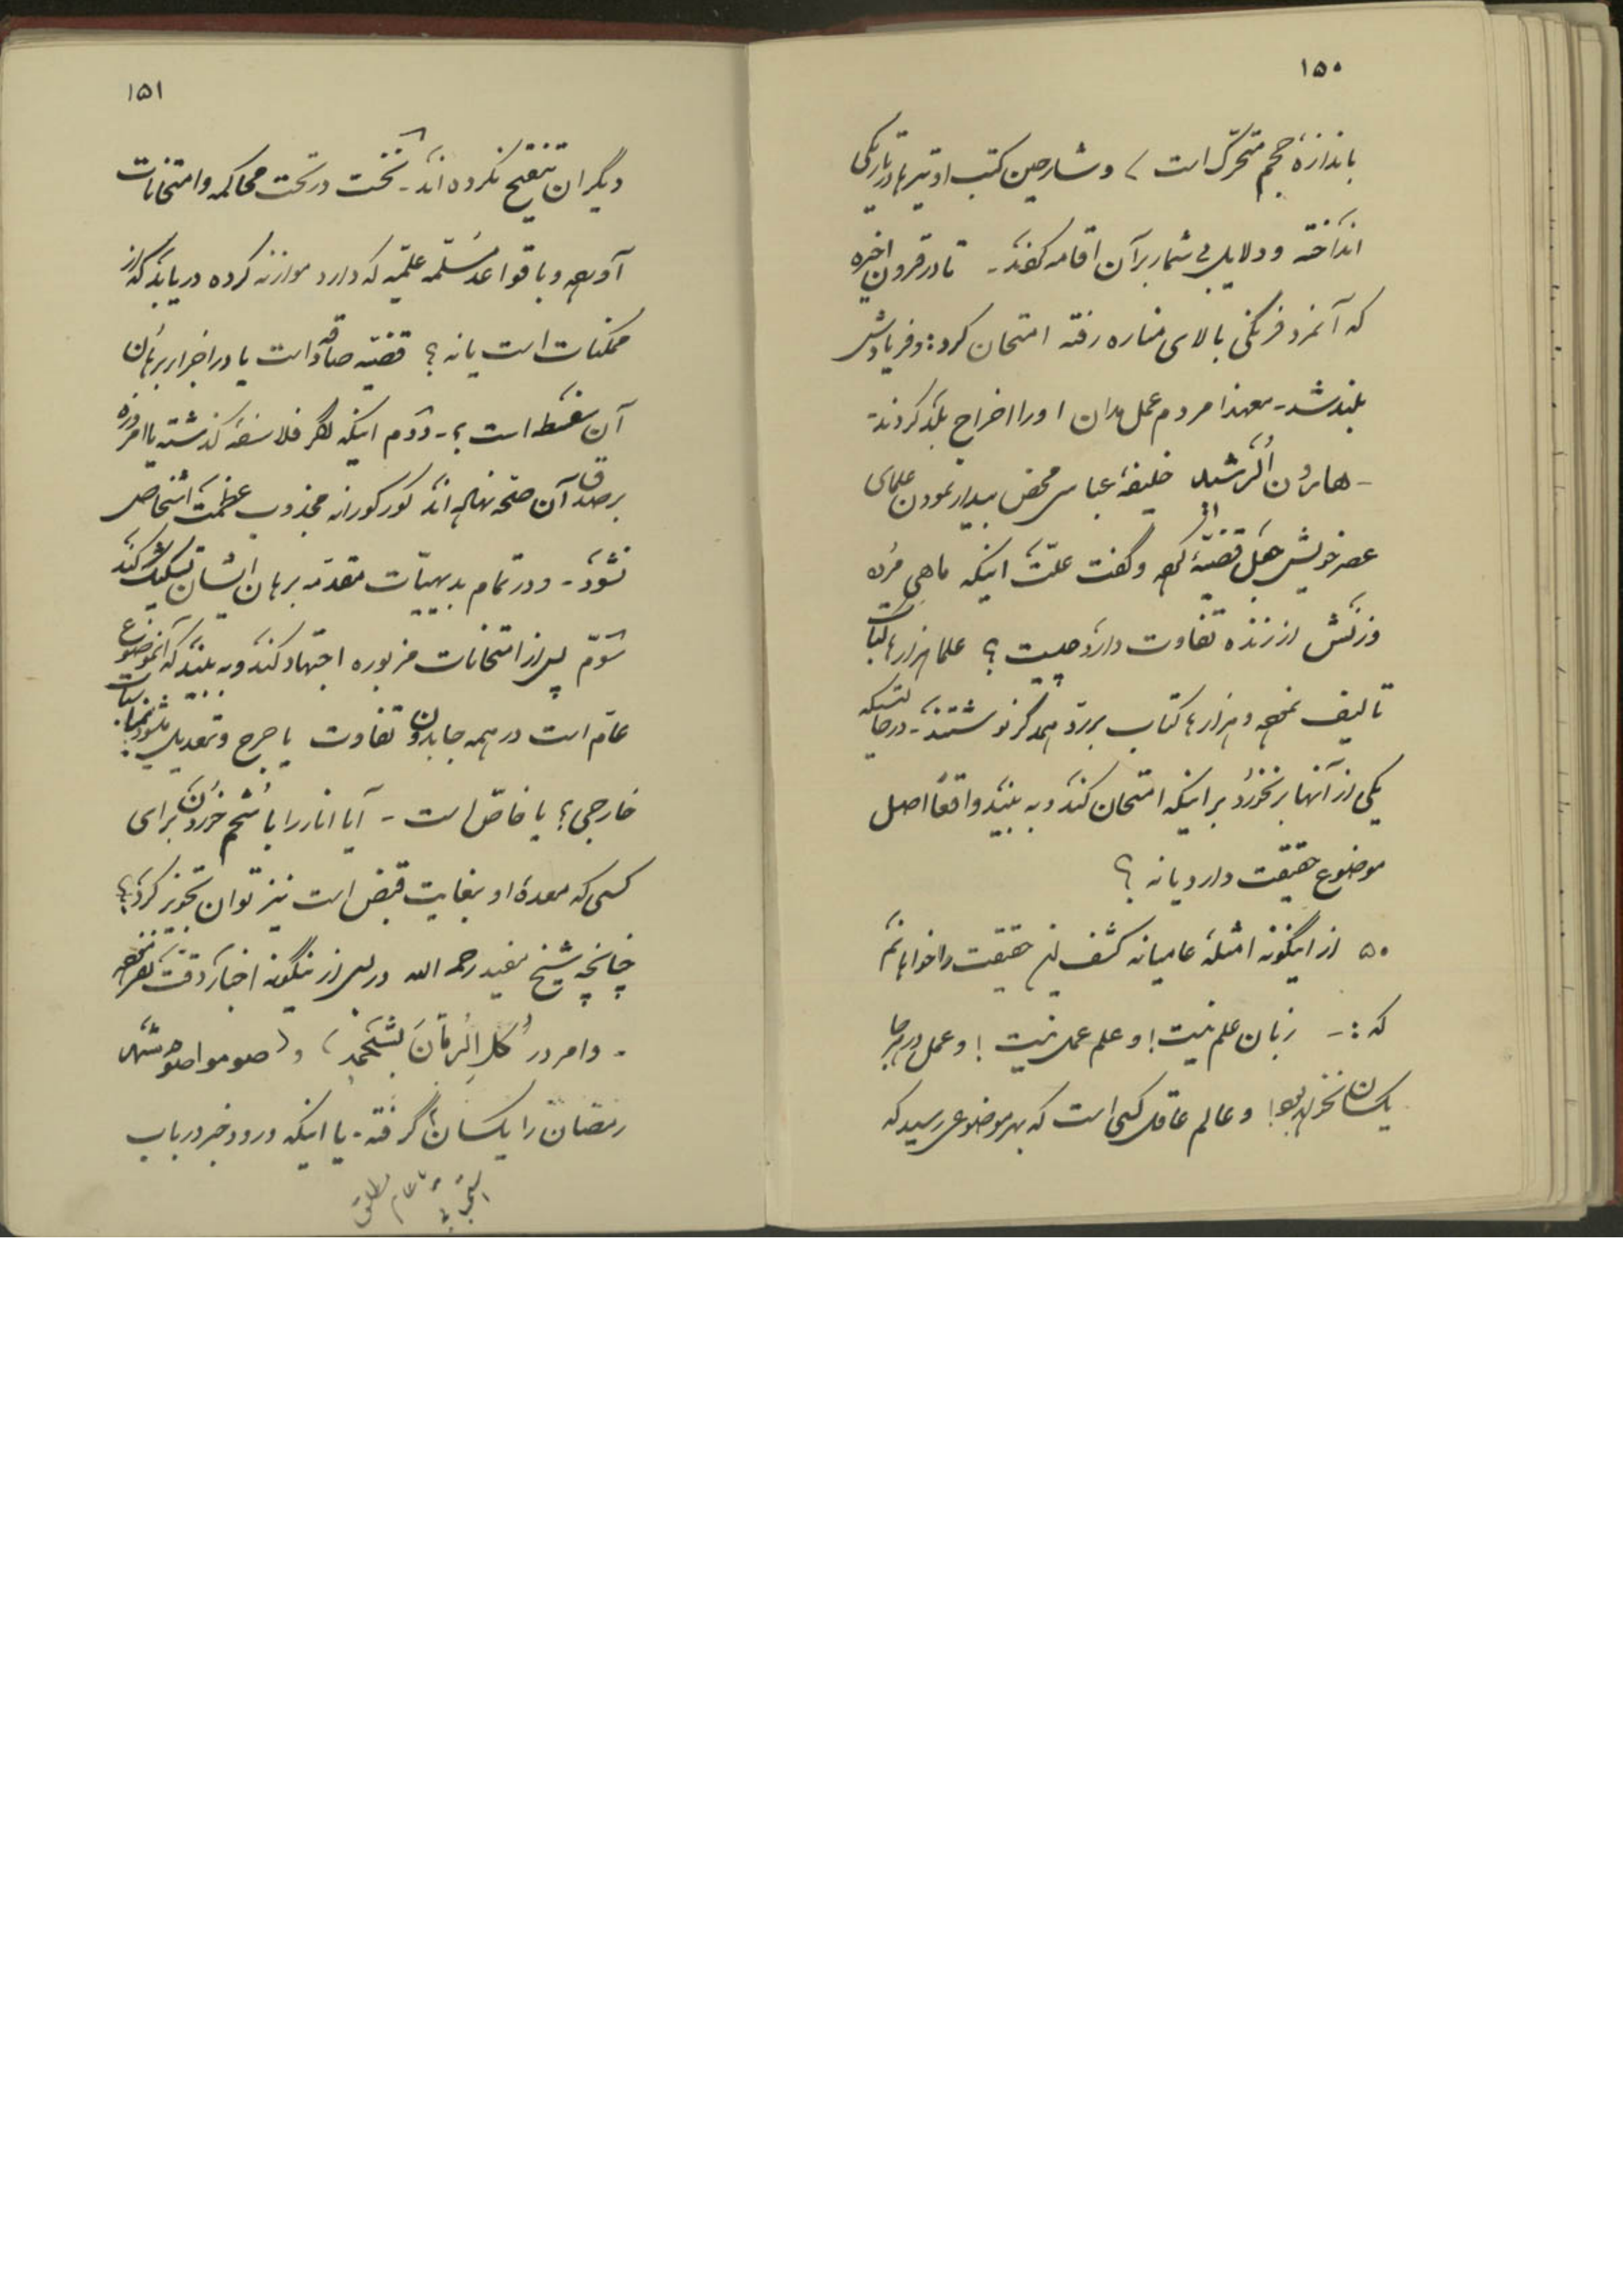 ۱۵۰
باندازهٔ حجم متحرک است / و شارحین کتب او تیرها در تاریکی
انداخته و دلایل بی شمار بر آن اقامه کردند - تا در قرون اخیره
که آنمرد فرنگی بالای مناره رفته امتحان کرد: و فریادش
بلند شد - معهذا مردم عمل اورا اخراج بلد کردند
- هارون الرشید خلیفهٔ عباسی محض بیدار نمودن علمای
عصر خویش جعل قضیهٔ کرده و گفت علت اینکه ماهی مرده
وزنش از زنده تفاوت دارد چیست ؟ علما هزارها کتاب
تالیف نموده و هزارها کتاب بر رد همدگر نوشتند - در حالتیکه
یکی از آنها بر نخورد بر اینکه امتحان کند و به بیند واقعاً اصل
موضوع حقیقت دارد یا نه ؟
۵۰ از اینگونه امثلهٔ عامیانه کشف این حقیقت را خواهانم
که :- زبان علم نیست! و علم عمل نیست ! و عمل در هر جا
یکسان نخواهد بود! و عالم عاقل کسی است که بهر موضوعی رسید که
۱۵۱
دیگران تنقیح نکرده اند - نخست در تحت محاکمه و امتحانات
آورده و با قواعد مسلمه علمیه که دارد موازنه کرده دریابد که از
ممکنات است یا نه ؟ قضیه صادقه است یا در اجزاء برهان
آن سفسطه است ؟ - دوم اینکه اگر فلاسفهٔ گذشته یا امروزه
بر صدق آن صحه نهاده اند کورکورانه مجذوب عظمت اشخاص
نشود - و در تمام بدیهیات مقدمه برهان ایشان تشکیک کند
سوم پس از امتحانات مزبوره اجتهاد کند و به بیند که آنموضوع
عام است در همه جا بدون تفاوت یا جرح و تعدیل میشود بمناسبات
خارجی ؟ یا خاص است - آیا انار را با شحم خوردن برای
کسی که معدهٔ او بغایت قبض است نیز توان تجویز کرد ؟
چنانچه شیخ مفید رحمه الله در پس از اینگونه اخبار دقت نظر نموده
- و امر در (کل الرمان بشحمه) و (صوموا تصحوا) شهر
رمضان را یکسان گرفته - یا اینکه ورود خبر در باب